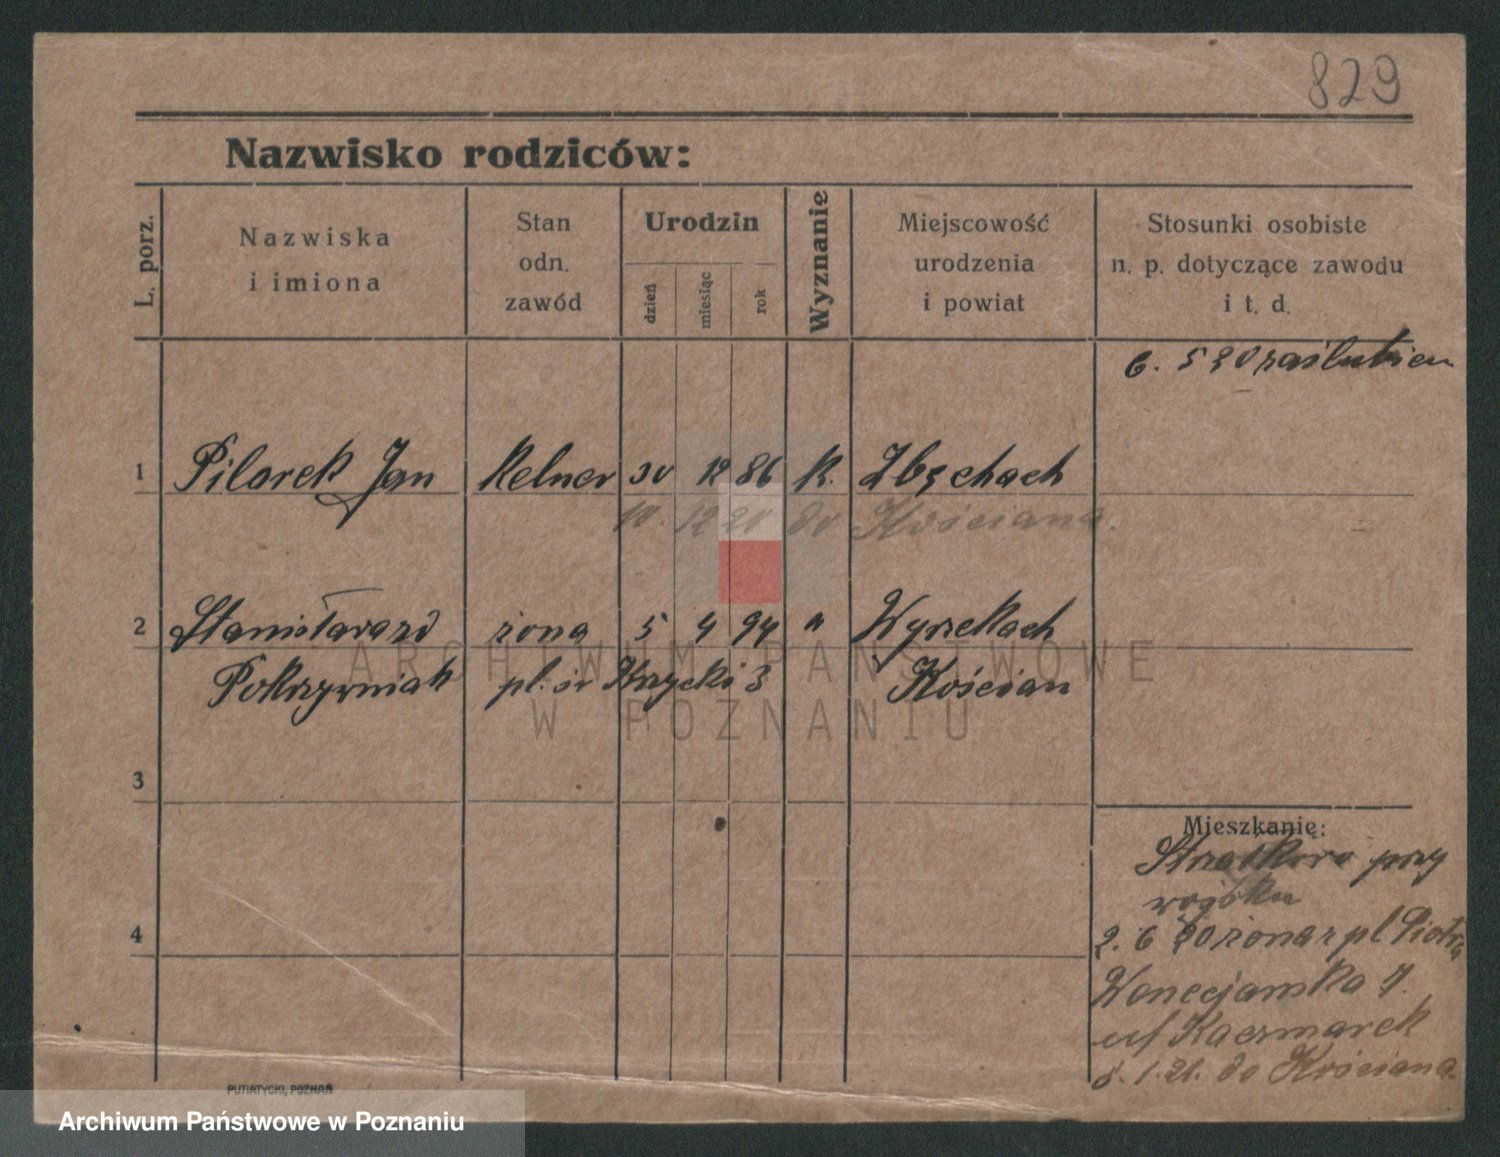 829
Nazwisko rodziców:
L. porz.
Nazwiska
i imiona
Stan
odn.
zawód
Urodzin
dzień
miesiąc
rok
Wyznanie
Miejscowość
urodzenia
i powiat
Stosunki osobiste
n. p. dotyczące zawodu
i t. d.
6. 5 20 zaślubien
1 Pilarek Jan kelner 30 12 86 k. Zbęchach
10. 12 20 do Kościana.
2 Stanisława zd żona 5 4 94 " Wyrzekach
Pokrzywniak pl. św Krzyski 3 Kościan
ARCHIWUM PAŃSTWOWE
W POZNANIU
3
4
Mieszkanie:
przy
wojsku
2. 6 20 żona z pl Piotra
Wenecjanska 7.
u/ Kaczmarek
8. 1. 21. do Kościana.
PUTIATYCKI, POZNAŃ
Archiwum Państwowe w Poznaniu